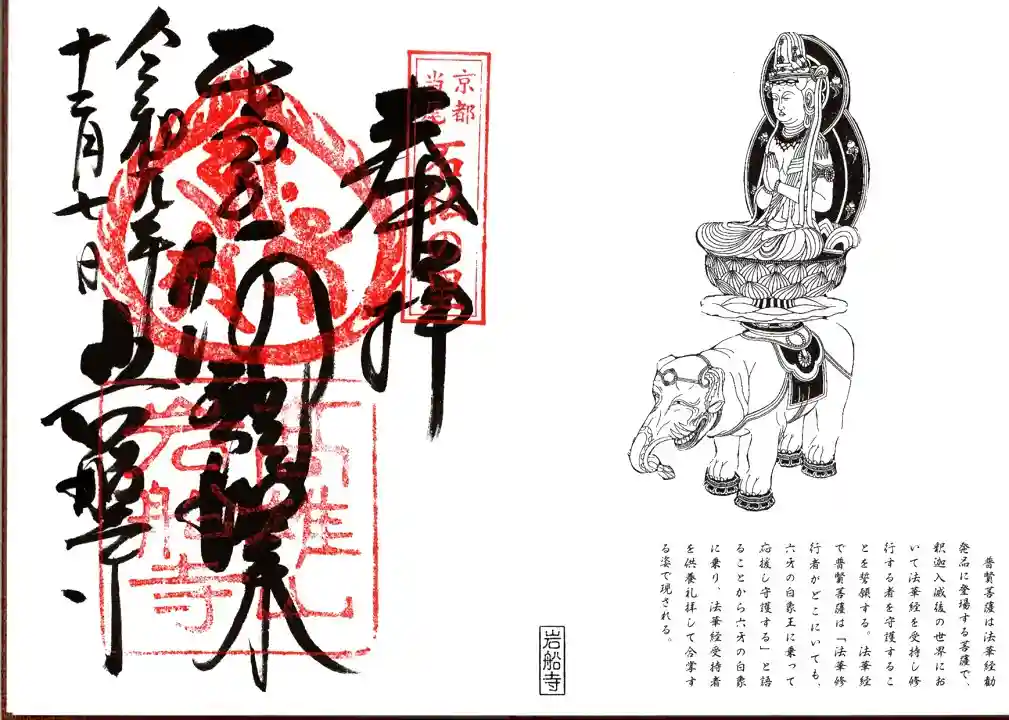 普賢菩薩は法華経勧
発品に登場する菩薩で、
釈迦入滅後の世界にお
いて法華経を受持し修
行する者を守護するこ
とを誓願する。法華経
で普賢菩薩は「法華修
行者がどこにいても、
六牙の白象王に乗って
応援し守護する」と語
ることから六牙の白象
に乗り、法華経受持者
を供養礼拝して合掌す
る姿で現される。
岩船寺
京都
当尾
石仏の里
奉拝
高雄山
岩船寺
令和元年
十二月七日
岩船寺